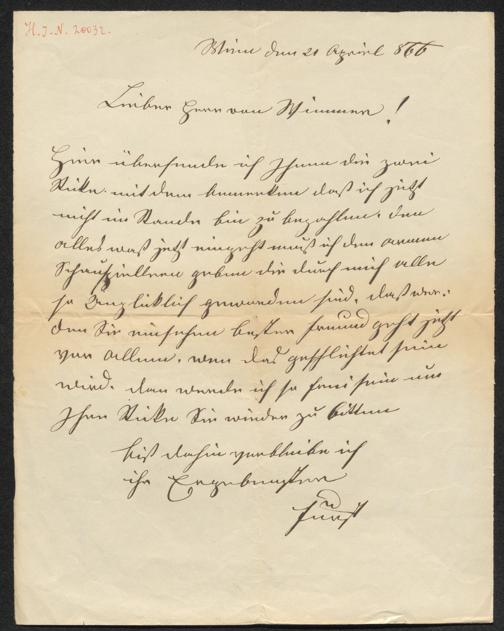 H. I. N. 20032.
Wien den 21 Apriel 866
Lieber Herr von Wimmer!
Hier übersende ich Ihnen die zwei
Stüke. mit dem bemerken daß ich jetzt
nicht im Stande bin zu bezahlen. den
alles waß jetzt eingeht muß ich den armen
Schauspiellern geben die durch mich alle
so Unglüklich geworden sind, daß wer-
den Sie einsehen bester Freund geht jetzt
vor allem. wen das geschlichtet sein
wird. dan werde ich so frei sein um
Ihre Stüke Sie wieder zu bitten
biß dahin verbleibe ich
ihr Ergebenster
Fürst